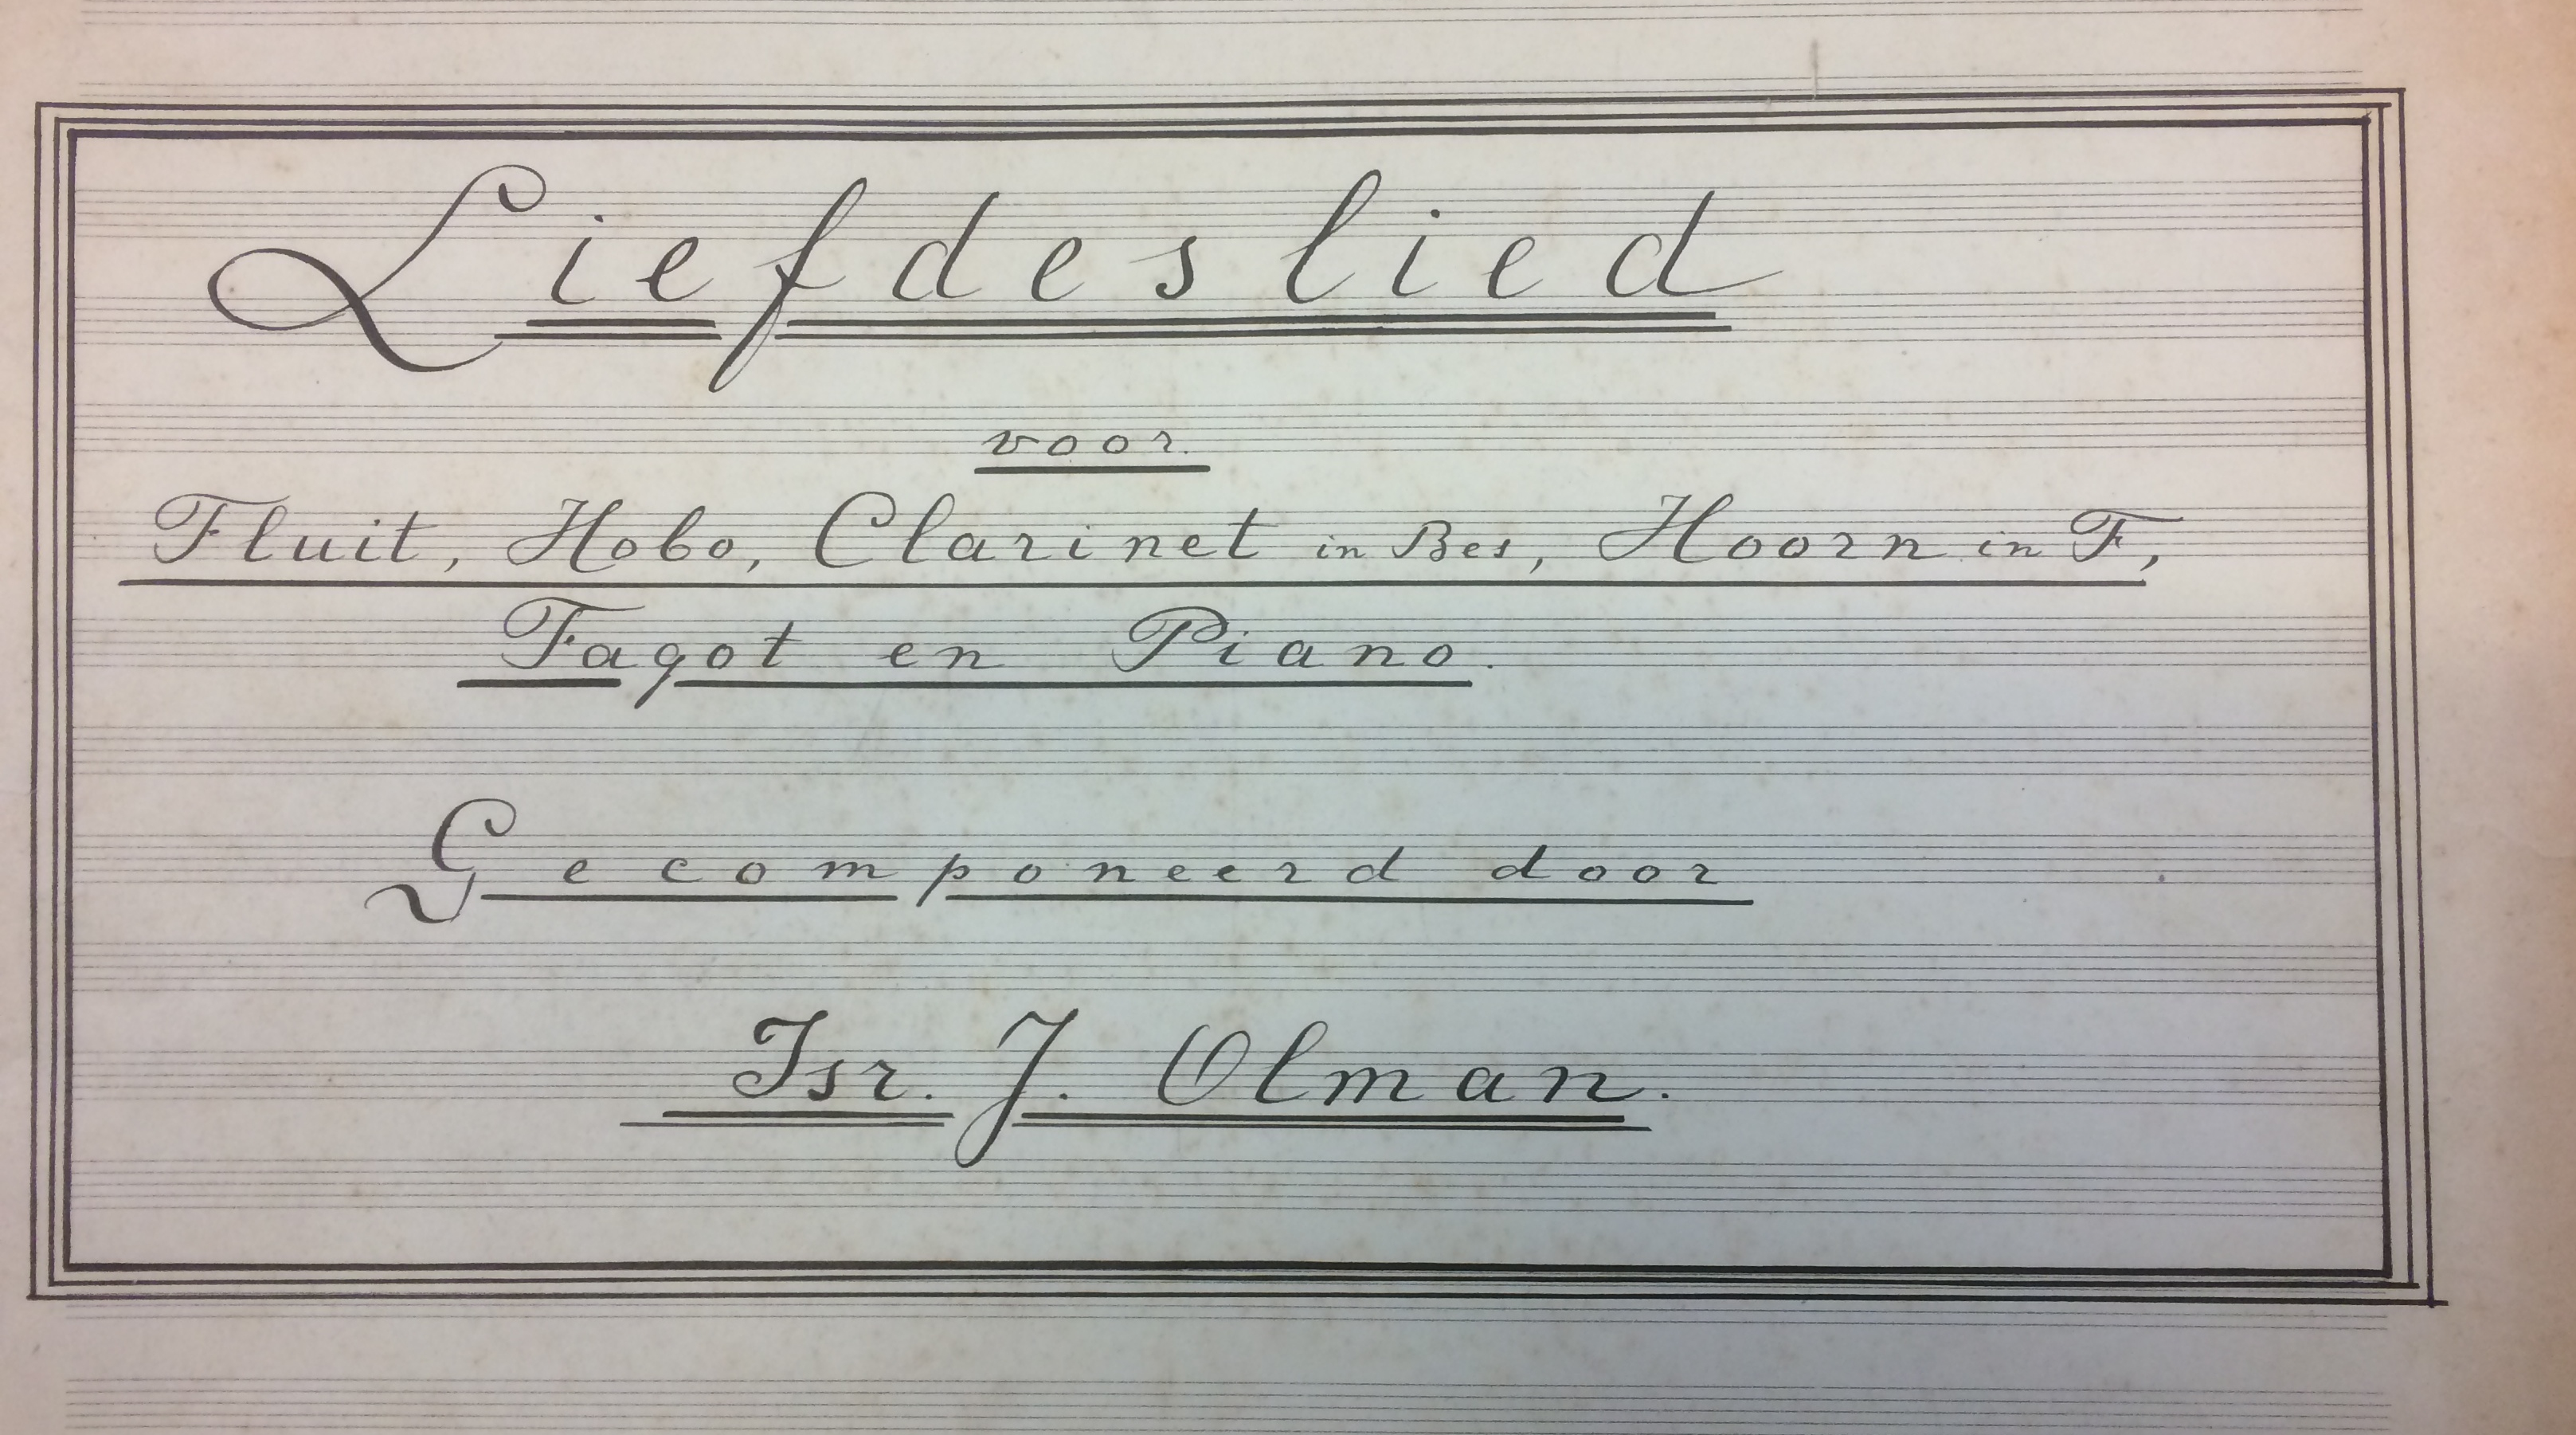 Liefdeslied
voor.
Fluit, Hobo, Clarinet in Bes, Hoorn in F,
Fagot en Piano.
Gecomponeerd door
Isr. J. Olman.